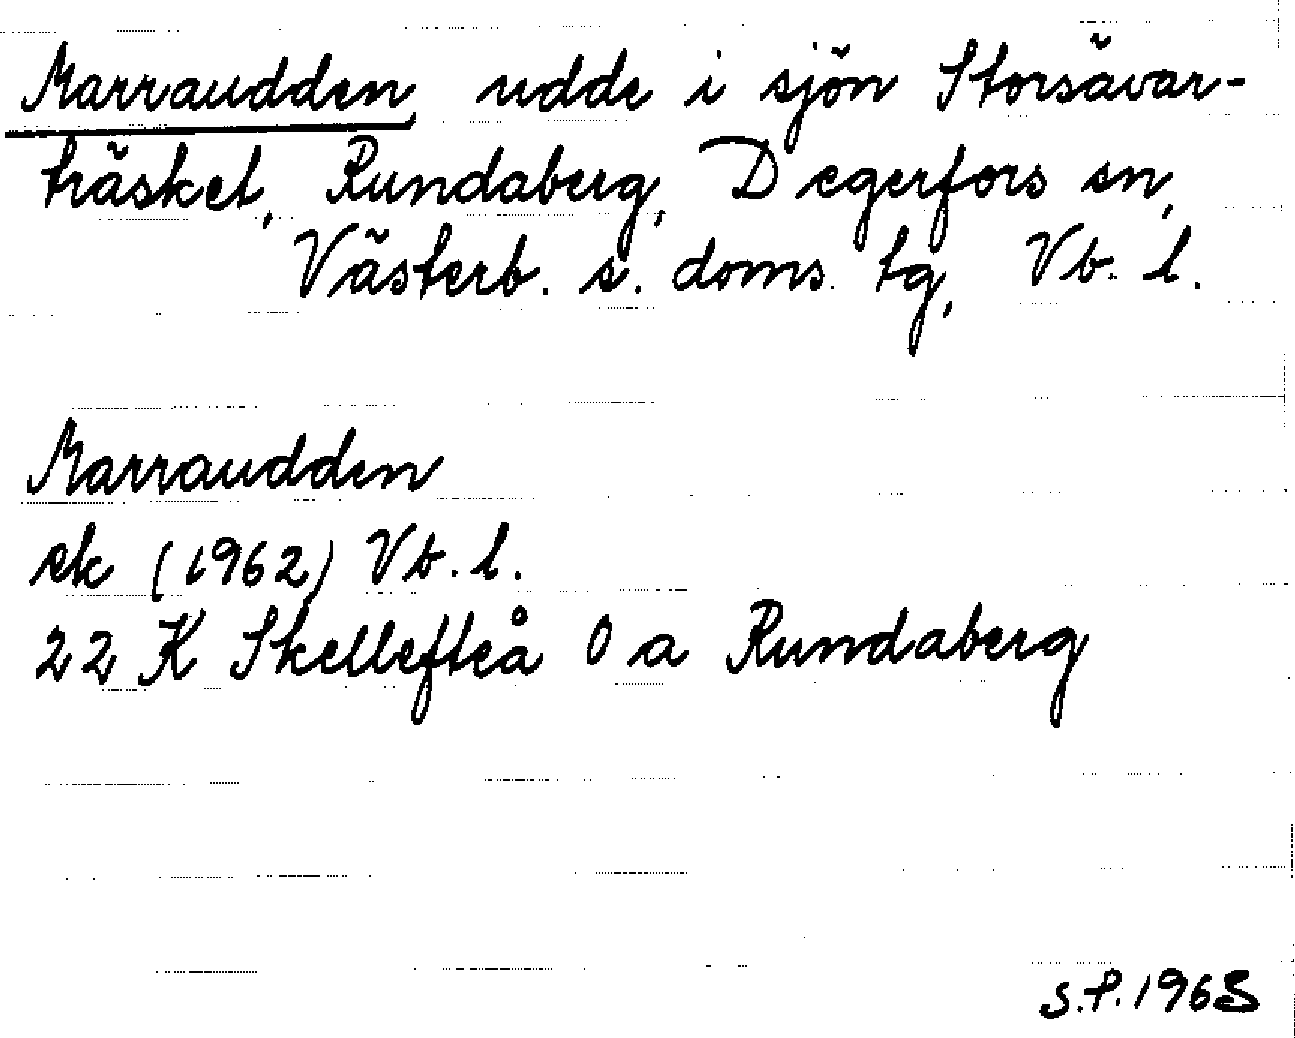 Marraudden, udde i sjön Storsävar-
träsket, Rundaberg, Degerfors sn,
Västerb. s. doms. tg, Vb. l.
Marraudden
ek (1962) Vb. l.
22 K Skellefteå 0 a Rundaberg
S.P. 1963